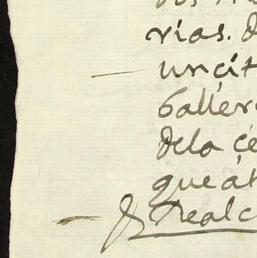 rias. d
uncit
baller
dela çe
que at
Real c